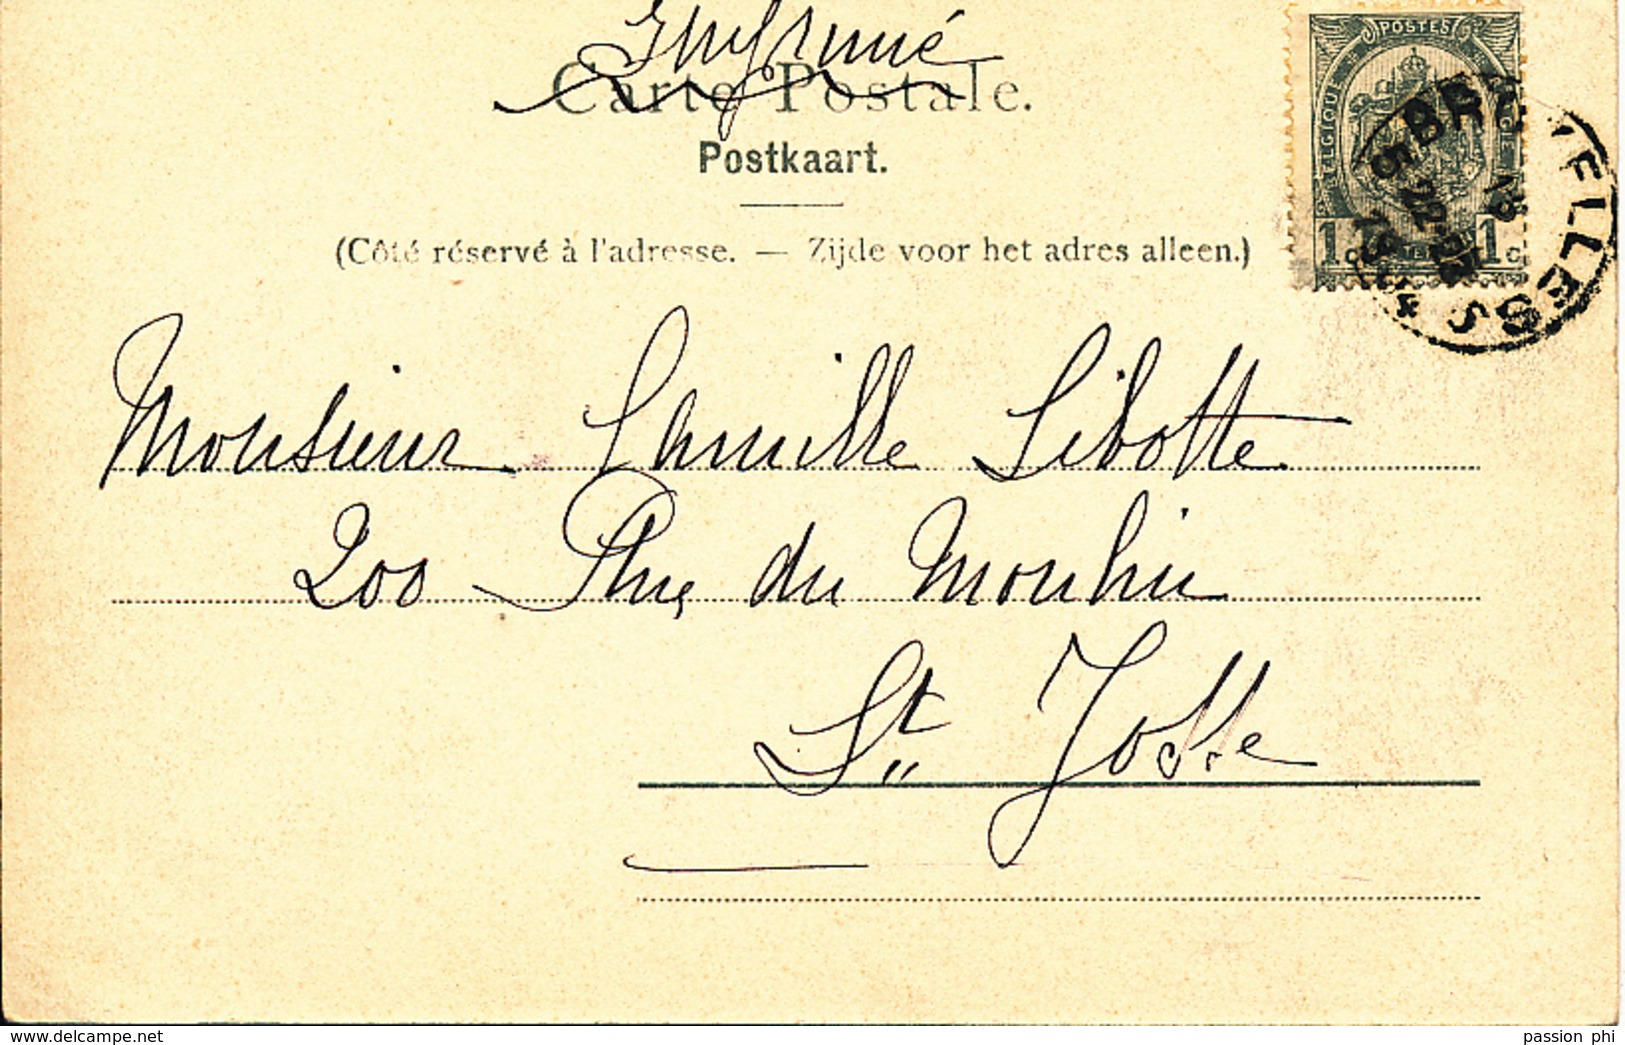 Imprimé
Carte Postale.
Postkaart.
(Côté réservé à l'adresse. — Zijde voor het adres alleen.)
POSTES
BELGIQUE BELGIE
1 c CENTIEM 1 c
BRUXELLES
Monsieur Camille Libotte
200 Rue du Moulin
St Josse
delcampe.net
passion phi